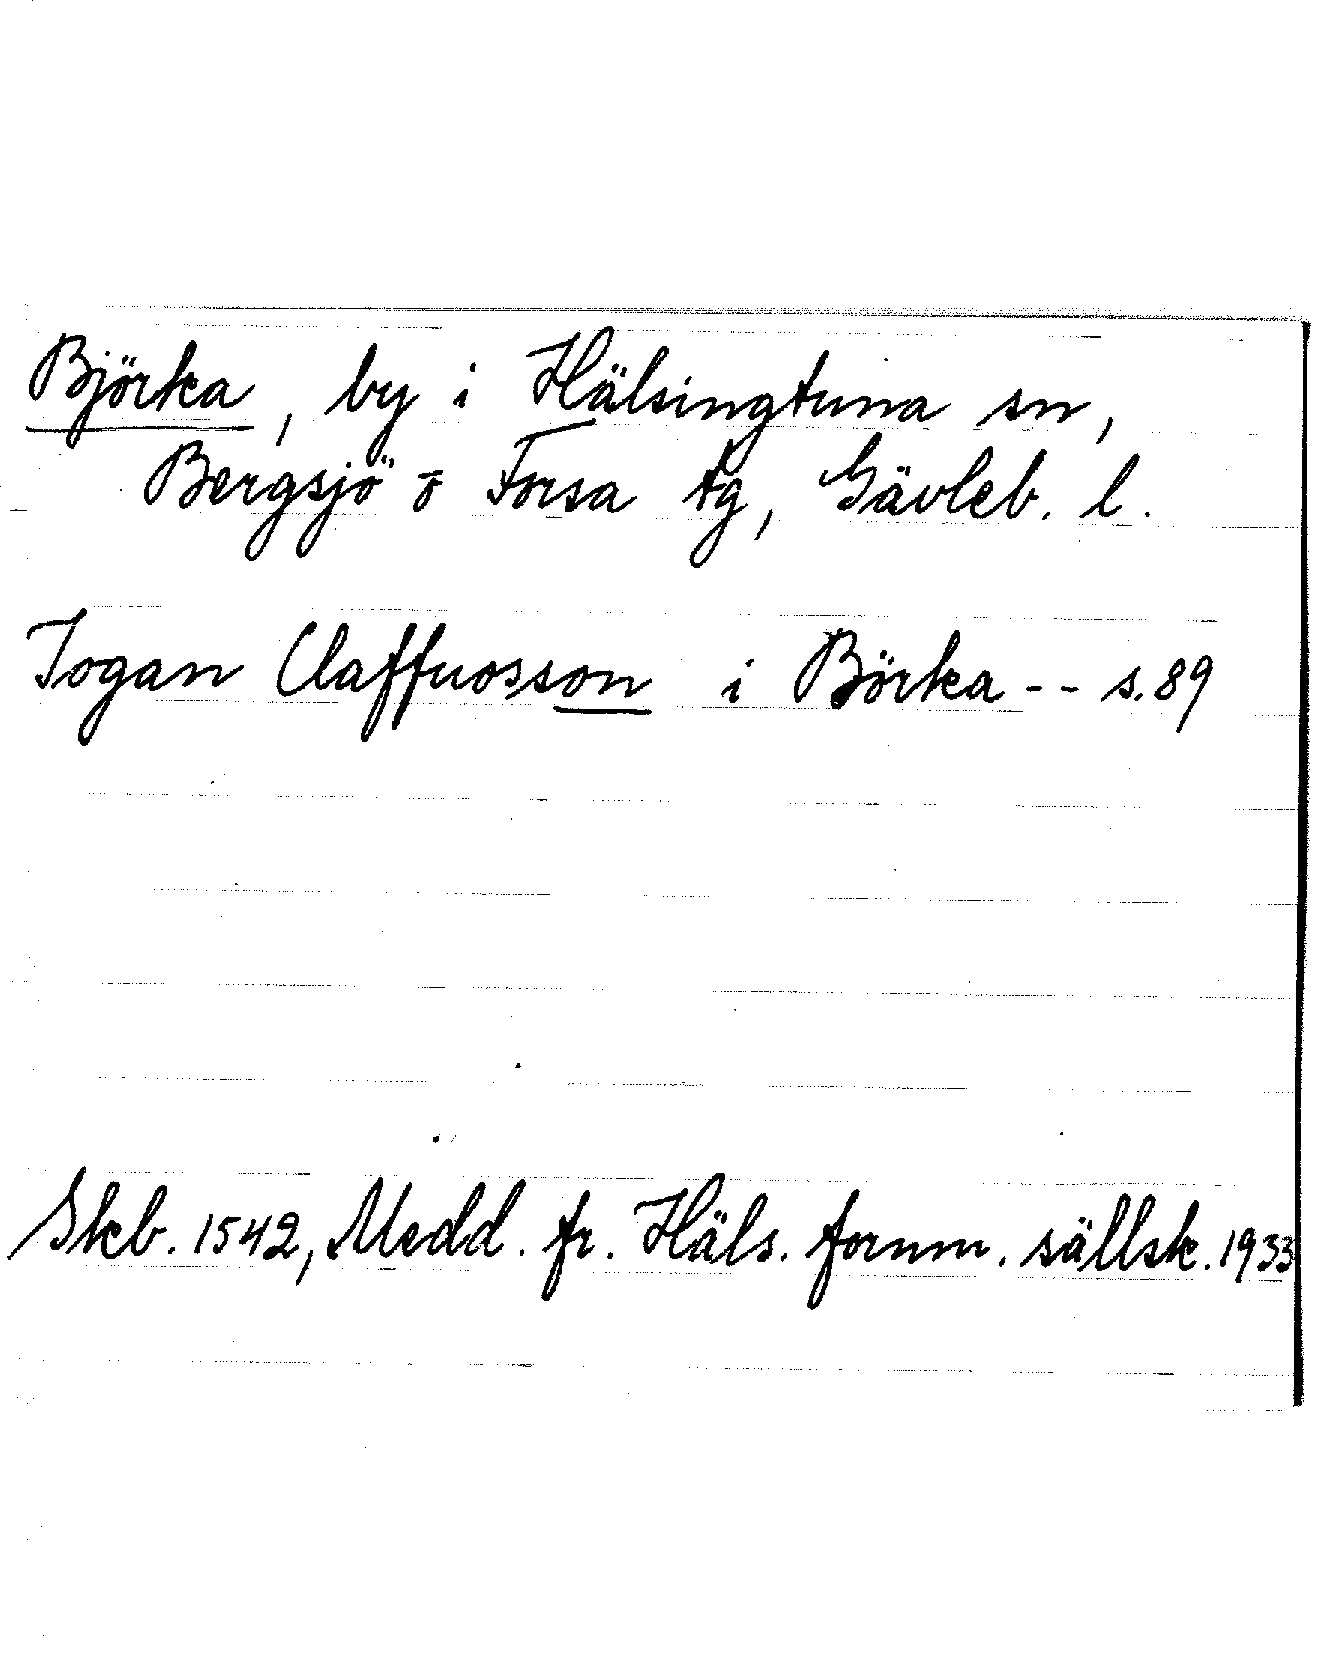 Björka, by i Hälsingtuna sn,
Bergsjö o Forsa tg, Gävleb. l.
Jogan Claffuosson i Börka -- s. 89
Skb. 1542, Medd. fr. Häls. fornm. sällsk. 1933